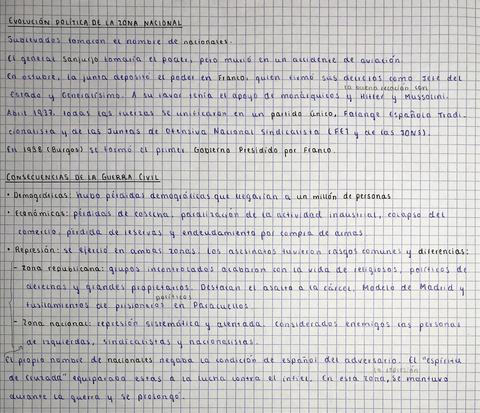 EVOLUCIÓN POLÍTICA DE LA ZONA NACIONAL
Sublevados tomaron el nombre de nacionales.
El general Sanjurjo tomaría el poder, pero murió en un accidente de aviación.
En octubre, la junta depositó el poder en Franco, quien firmó sus decretos como Jefe del
la buena relación con
Estado y Generalísimo. A su favor tenía el apoyo de monárquicos y Hitler y Mussolini.
Abril 1937. Todas las fuerzas se unificaron en un partido único, Falange Española Tradi-
cionalista y de las Juntas de Ofensiva Nacional Sindicalista (FET y de las JONS).
En 1938 (Burgos) se formó el primer Gobierno Presidido por Franco.
CONSECUENCIAS DE LA GUERRA CIVIL
• Demográficas: hubo pérdidas demográficas que llegarían a un millón de personas
• Económicas: pérdidas de cosecha, paralización de la actividad industrial, colapso del
comercio, pérdida de reservas y endeudamiento por compra de armas.
• Represión: se ejerció en ambas zonas. Los asesinatos tuvieron rasgos comunes y diferencias:
- Zona republicana: grupos incontrolados acabaron con la vida de religiosos, políticos de
derechas y grandes propietarios. Destacan el asalto a la cárcel Modelo de Madrid y
políticos
fusilamientos de prisioneros en Paracuellos.
- Zona nacional: represión sistemática y alentada. Considerados enemigos las personas
de izquierdas, sindicalistas y nacionalistas.
El propio nombre de nacionales negaba la condición de español del adversario. El "espíritu
de Cruzada" equiparaba estas a la lucha contra el infiel. En esta zona, se mantuvo
durante la guerra y se prolongó.